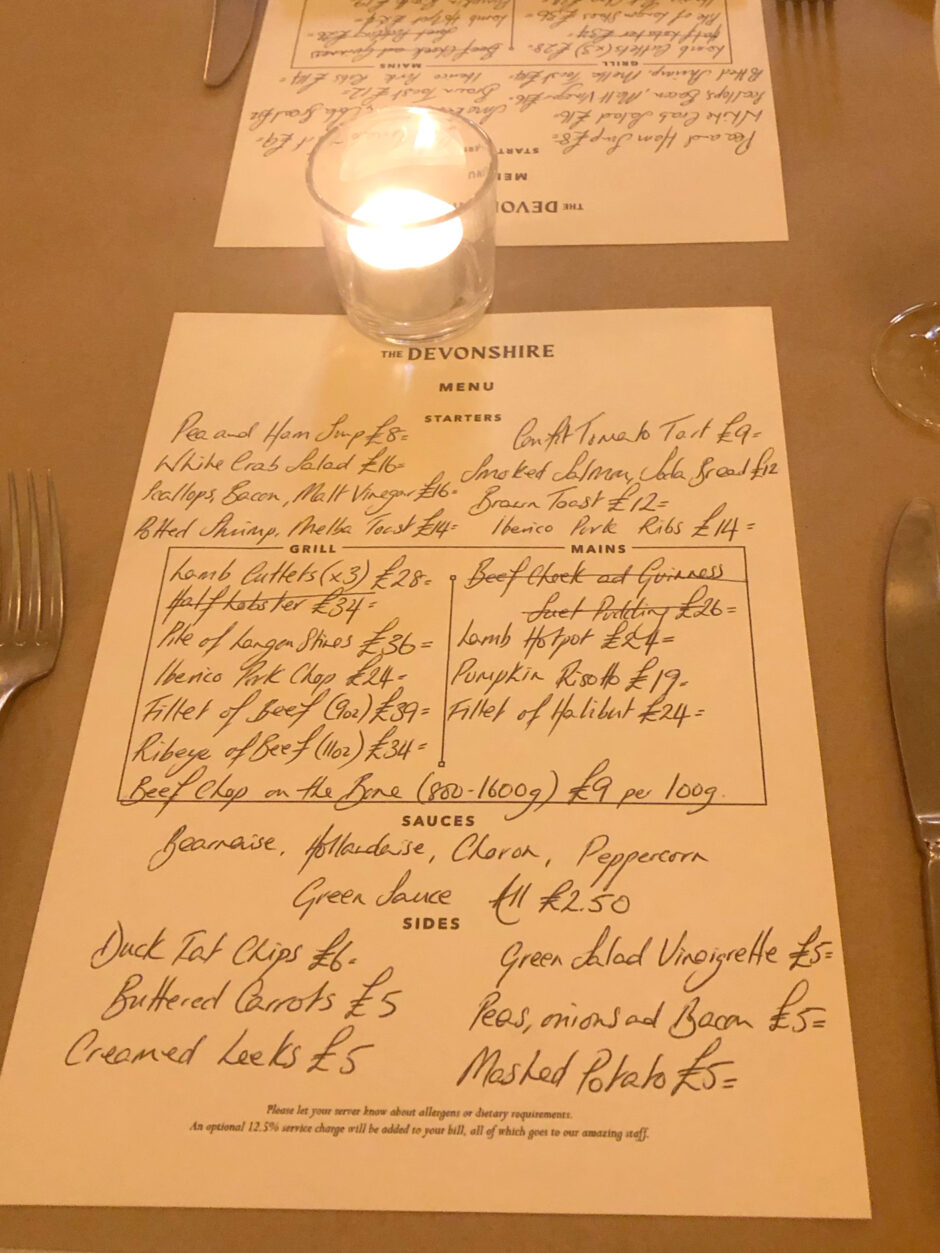 THE DEVONSHIRE
MENU
STARTERS
Pea and Ham Soup £8= Confit Tomato Tart £9=
White Crab Salad £16= Smoked Salmon, Soda Bread £12
Scallops, Bacon, Malt Vinegar £16= Brown Toast £12=
Potted Shrimp, Melba Toast £14= Iberico Pork Ribs £14=
GRILL MAINS
Lamb Cutlets (x3) £28= Beef Cheek and Guinness
Half Lobster £34= Suet Pudding £26=
Pile of Langoustines £36= Lamb Hotpot £24=
Iberico Pork Chop £24= Pumpkin Risotto £19=
Fillet of Beef (9oz) £39= Fillet of Halibut £24=
Ribeye of Beef (11oz) £34=
Beef Chop on the Bone (800-1600g) £9 per 100g.
SAUCES
Bearnaise, Hollandaise, Choron, Peppercorn
Green Sauce All £2.50
SIDES
Duck Fat Chips £6= Green Salad Vinaigrette £5=
Buttered Carrots £5 Peas, onions ad Bacon £5=
Creamed Leeks £5 Mashed Potato £5=
Please let your server know about allergens or dietary requirements.
An optional 12.5% service charge will be added to your bill, all of which goes to our amazing staff.
THE DEVO
MENU
START
Pea and Ham Soup £8=
White Crab Salad £16=
Scallops, Bacon, Malt Vinegar £16= Brown Toast £12=
Potted Shrimp, Melba Toast £14= Iberico Pork Ribs £14=
GRILL MAINS
Lamb Cutlets (x3) £28= Beef Cheek and Guinness
Half Lobster £34= Suet Pudding £26=
Pile of Langoustines £36= Lamb Hotpot £24=